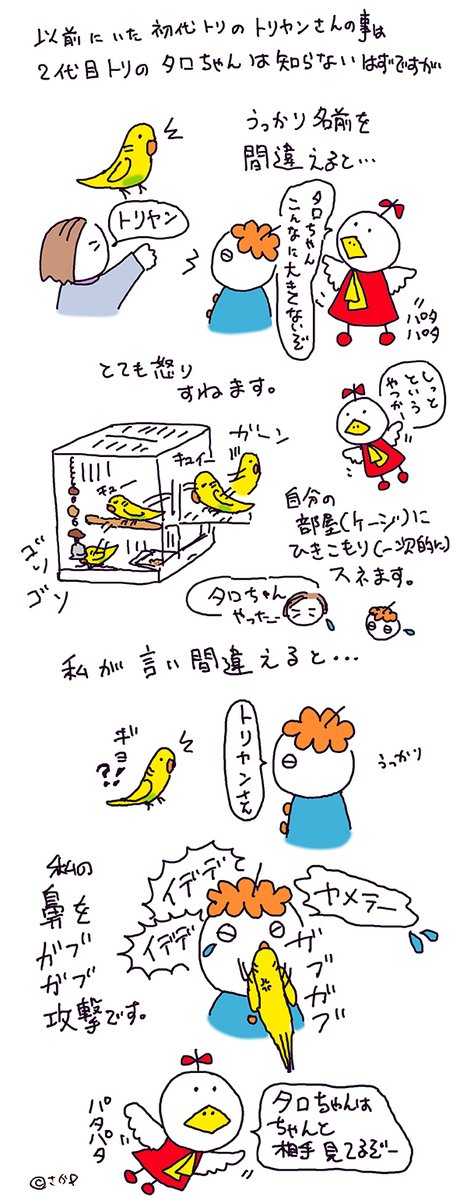 以前にいた初代トリのトリヤンさんの事は
2代目トリのタロちゃんは知らないはずですが
うっかり名前を
間違えると…
トリヤン
タロちゃん
こんなに大きくないぞ
パタ
パタ
とても怒り
すねます。
しっと
という
やつかー
ガーン
キュイー
キュー
ゴソ
ゴソ
自分の
部屋(ケージ)に
ひきこもり(一次的に)
スネます。
タロちゃん
やったー
私が言い間違えると…
ギョ
?!
トリヤンさん
うっかり
私の
鼻を
ガブ
ガブ
攻撃です。
イデデと
イデデ
ヤメテー
ガブガブ
パタ
パタ
タロちゃんは
ちゃんと
相手見てるぞー